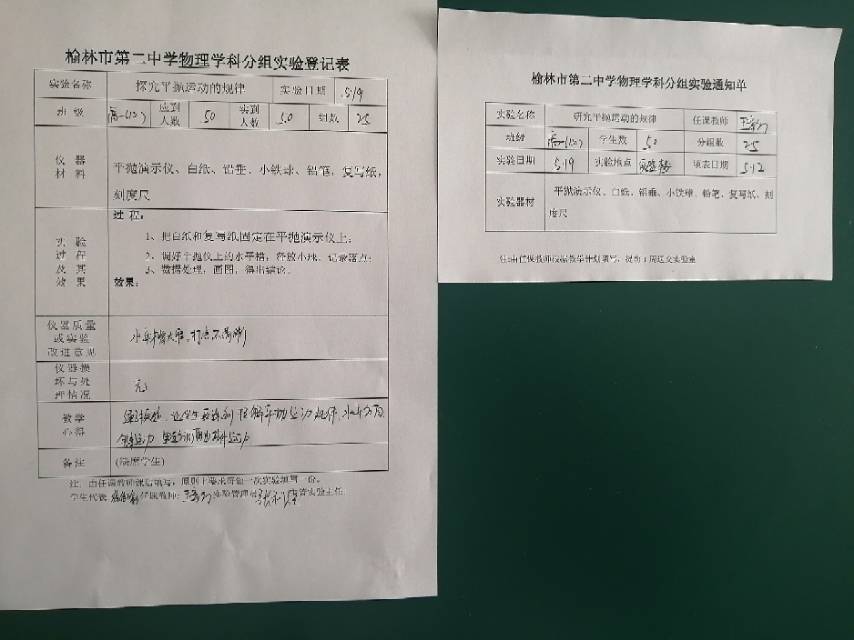 榆林市第二中学物理学科分组实验登记表
实验名称 探究平抛运动的规律 实验日期 5.19
班级 高一(2) 应到人数 50 实到人数 50 组数 25
仪器材料 平抛演示仪、白纸、铅垂、小铁球、铅笔、复写纸、
刻度尺
实验过程及其效果 过程:
1、把白纸和复写纸固定在平抛演示仪上;
2、调好平抛仪上的水平槽,释放小球,记录落点;
3、数据处理,画图,得出结论。
效果:
仪器质量或实验改进意见
仪器损坏与处理情况 无
教学心得
备注 (缺席学生)
注:由任课教师课后填写,原则上要求每做一次实验填写一份。
学生代表: 任课教师: 实验管理员: 实验主任
榆林市第二中学物理学科分组实验通知单
实验名称 研究平抛运动的规律 任课教师
班级 高一(2) 学生数 50 分组数 25
实验日期 5.19 实验地点 填表日期 5.12
实验器材 平抛演示仪、白纸、铅垂、小铁球、铅笔、复写纸、刻
度尺
注:由任课教师根据教学计划填写,提前1周送交实验室